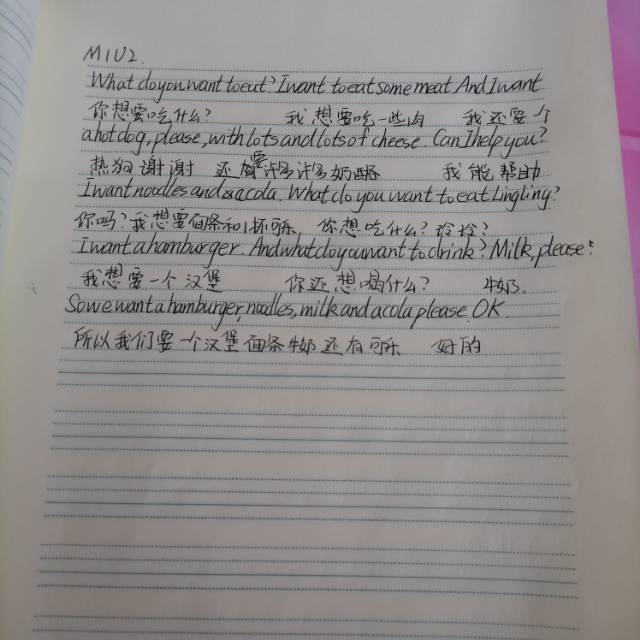 M1U2.
What do you want to eat? I want to eat some meat And I want
你想要吃什么? 我想要吃一些肉 我还要个
a hot dog, please, with lots and lots of cheese. Can I help you?
热狗谢谢 还有要许多许多奶酪 我能帮助
I want noodles and a cola. What do you want to eat Lingling?
你吗?我想要面条和1杯可乐, 你想吃什么?玲玲?
I want a hamburger. And what do you want to drink? Milk, please.
我想要一个汉堡 你还想喝什么? 牛奶.
So we want a hamburger, noodles, milk and a cola please. OK.
所以我们要一个汉堡面条牛奶还有可乐 好的